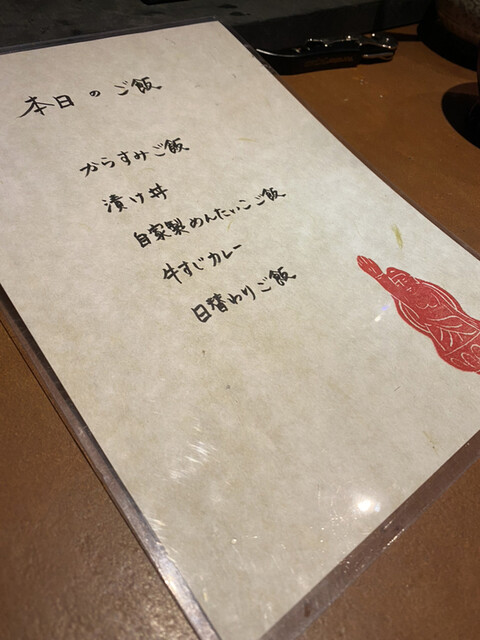 本日のご飯
からすみご飯
漬け丼
自家製めんたいこご飯
牛すじカレー
日替わりご飯